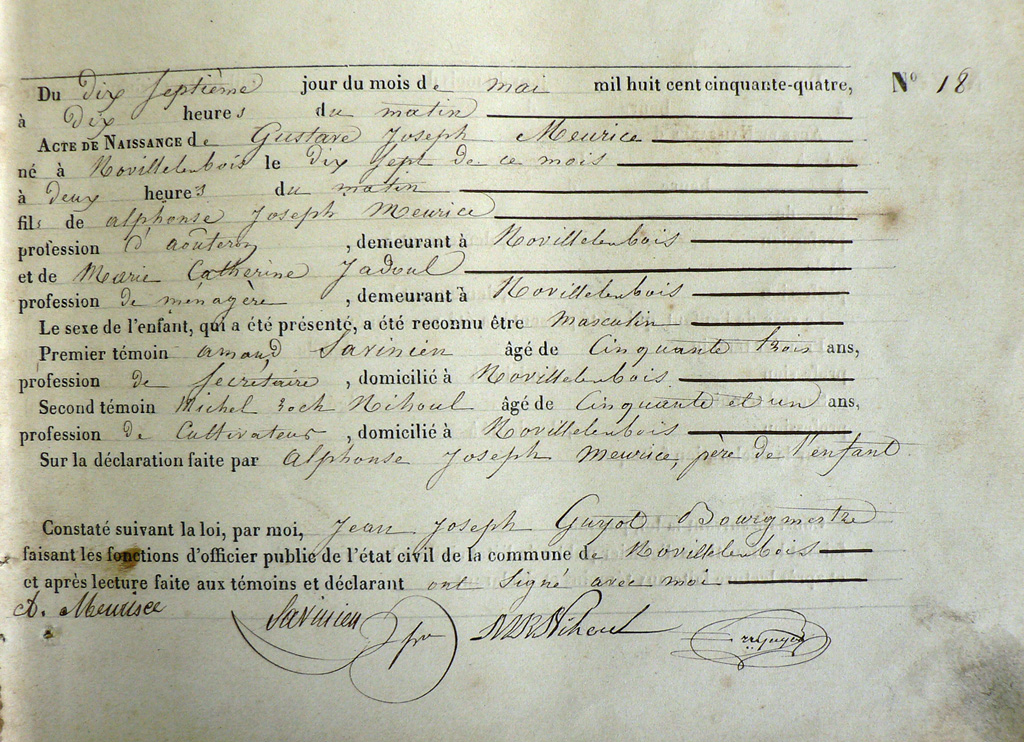 Du dix Septième jour du mois de mai mil huit cent cinquante-quatre, No 18
à Dix heures du matin
ACTE DE NAISSANCE de Gustave Joseph Meurice
né à Novillelenbois le dix sept de ce mois
à Deux heures du matin
fils de alphonse Joseph Meurice
profession d'aoûteron, demeurant à Novillelenbois
et de Marie Catherine Jadoul
profession de ménagère, demeurant à Novillelenbois
Le sexe de l'enfant, qui a été présenté, a été reconnu être Masculin
Premier témoin amand Savinien âgé de Cinquante trois ans,
profession de Secrétaire, domicilié à Novillelenbois
Second témoin Michel roch Nihoul âgé de Cinquante et un ans,
profession de Cultivateur, domicilié à Novillelenbois
Sur la déclaration faite par alphonse Joseph Meurice, père de l'enfant
Constaté suivant la loi, par moi, Jean Joseph Guyot Bourgmestre
faisant les fonctions d'officier public de l'état civil de la commune de Novillelenbois
et après lecture faite aux témoins et déclarant ont Signé avec moi
A. Meurice Savinien MRNihoul Guyot